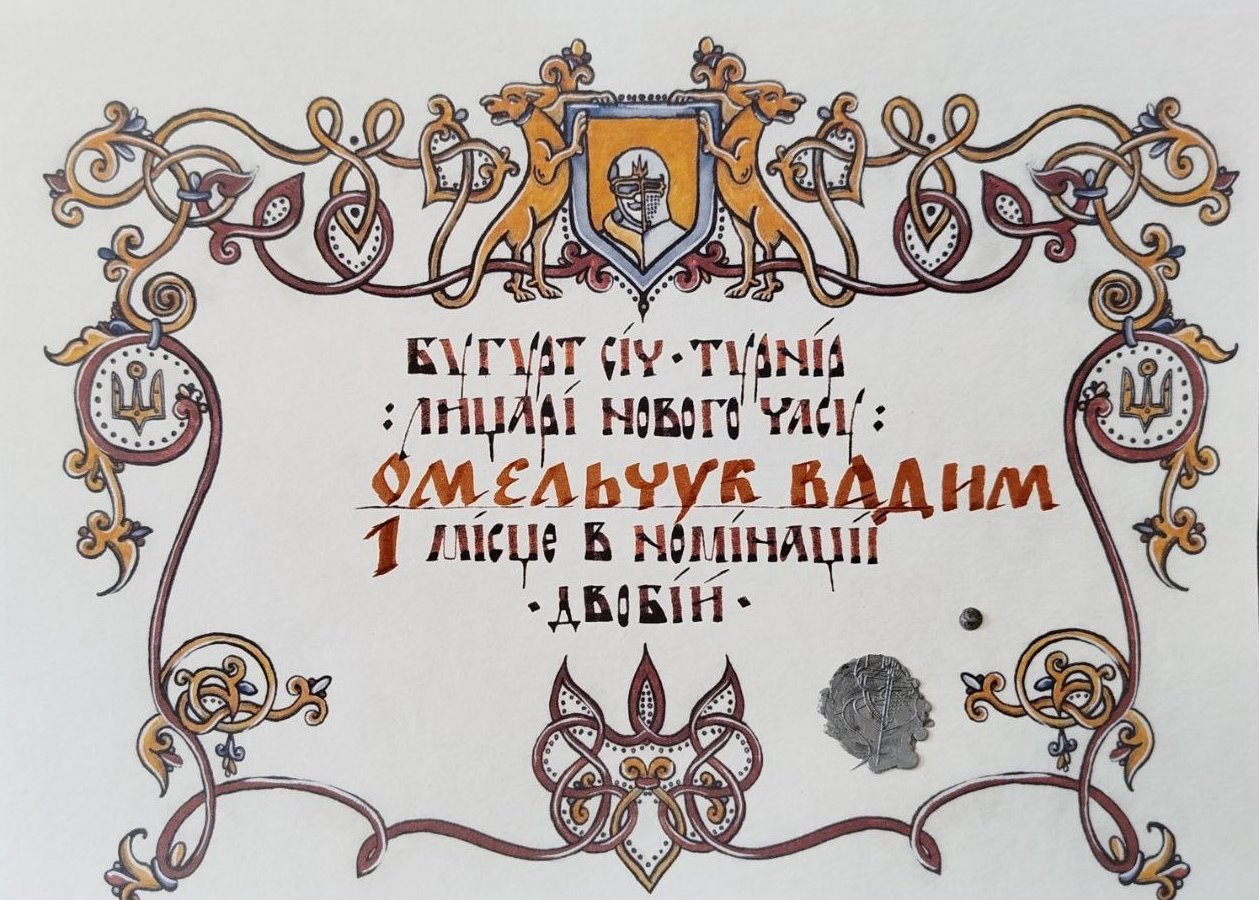 БУГУРТ СІЧ · ТУРНІР
: ЛИЦАРІ НОВОГО ЧАСУ :
ОМЕЛЬЧУК ВАДИМ
1 МІСЦЕ В НОМІНАЦІЇ
· ДВОБІЙ ·